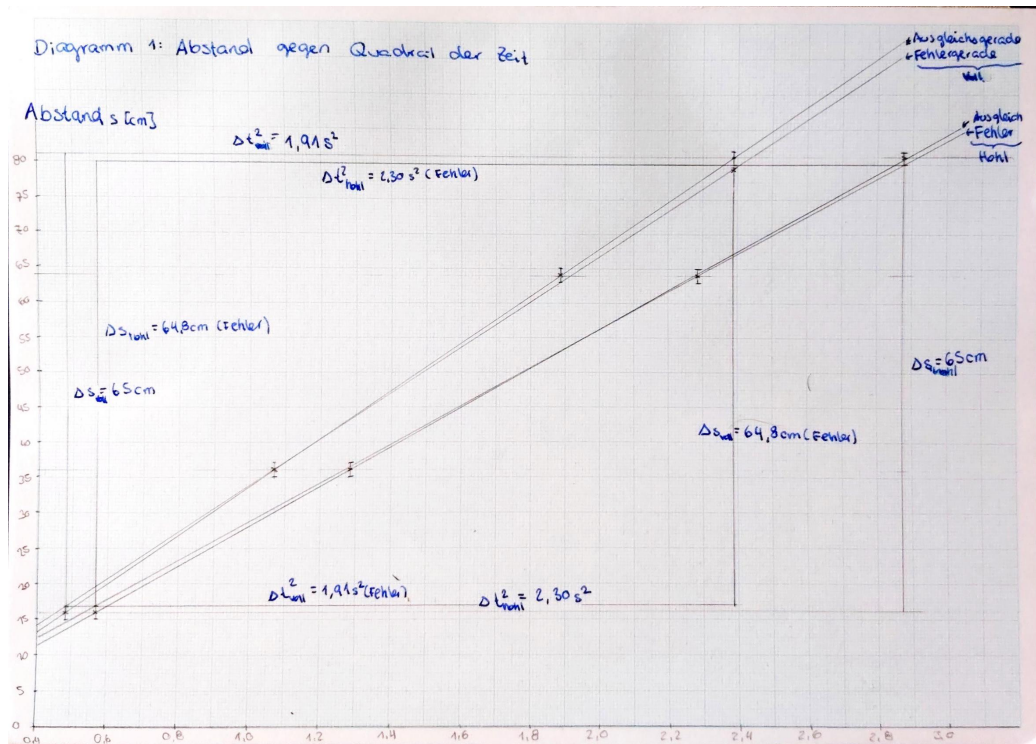 Diagramm 1: Abstand gegen Quadrat der Zeit
Ausgleichsgerade
Fehlergerade
Voll
Abstand s [cm]
Ausgleich
Fehler
Hohl
Δt²voll = 1,91 s²
Δt²hohl = 2,30 s² (Fehler)
Δs hohl = 64,8cm (Fehler)
Δs voll = 65cm
Δs hohl = 65cm
Δs voll = 64,8cm (Fehler)
Δt²voll = 1,91 s² (Fehler)
Δt²hohl = 2,30 s²
80
75
70
65
60
55
50
45
40
35
30
25
20
15
10
5
0
0,4 0,6 0,8 1,0 1,2 1,4 1,6 1,8 2,0 2,2 2,4 2,6 2,8 3,0